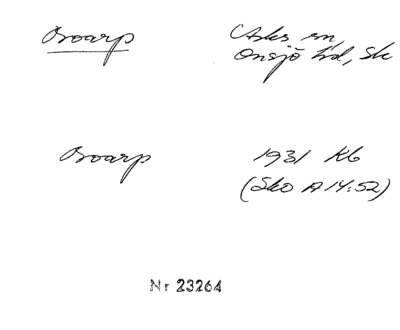 Boarp Asks sn,
Onsjö hd, Sk
Boarp 1931 Kb
(Sko A14:52)
Nr 23264